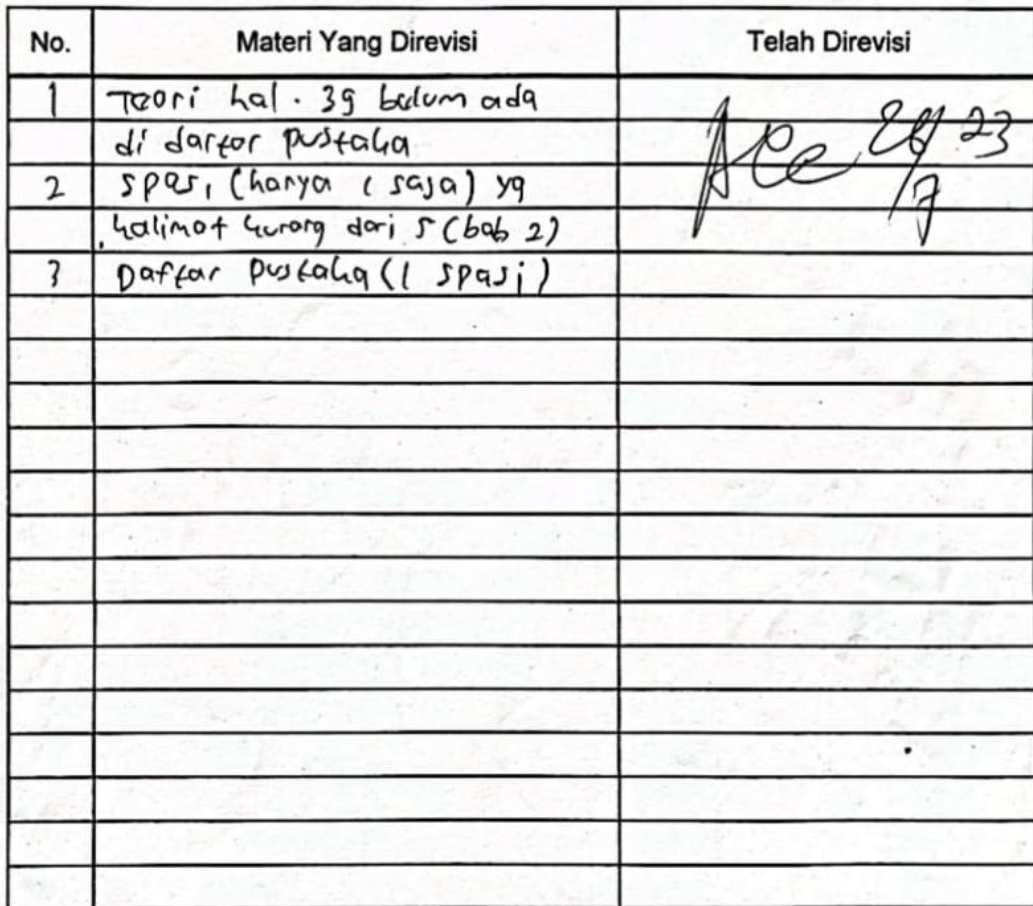 No. Materi Yang Direvisi Telah Direvisi
1 Teori hal. 39 belum ada
di daftar pustaka
2 spasi (hanya 1 saja) yg
kalimat kurang dari 5 (bab 2)
3 Daftar pustaka (1 spasi)
Acc 23
7